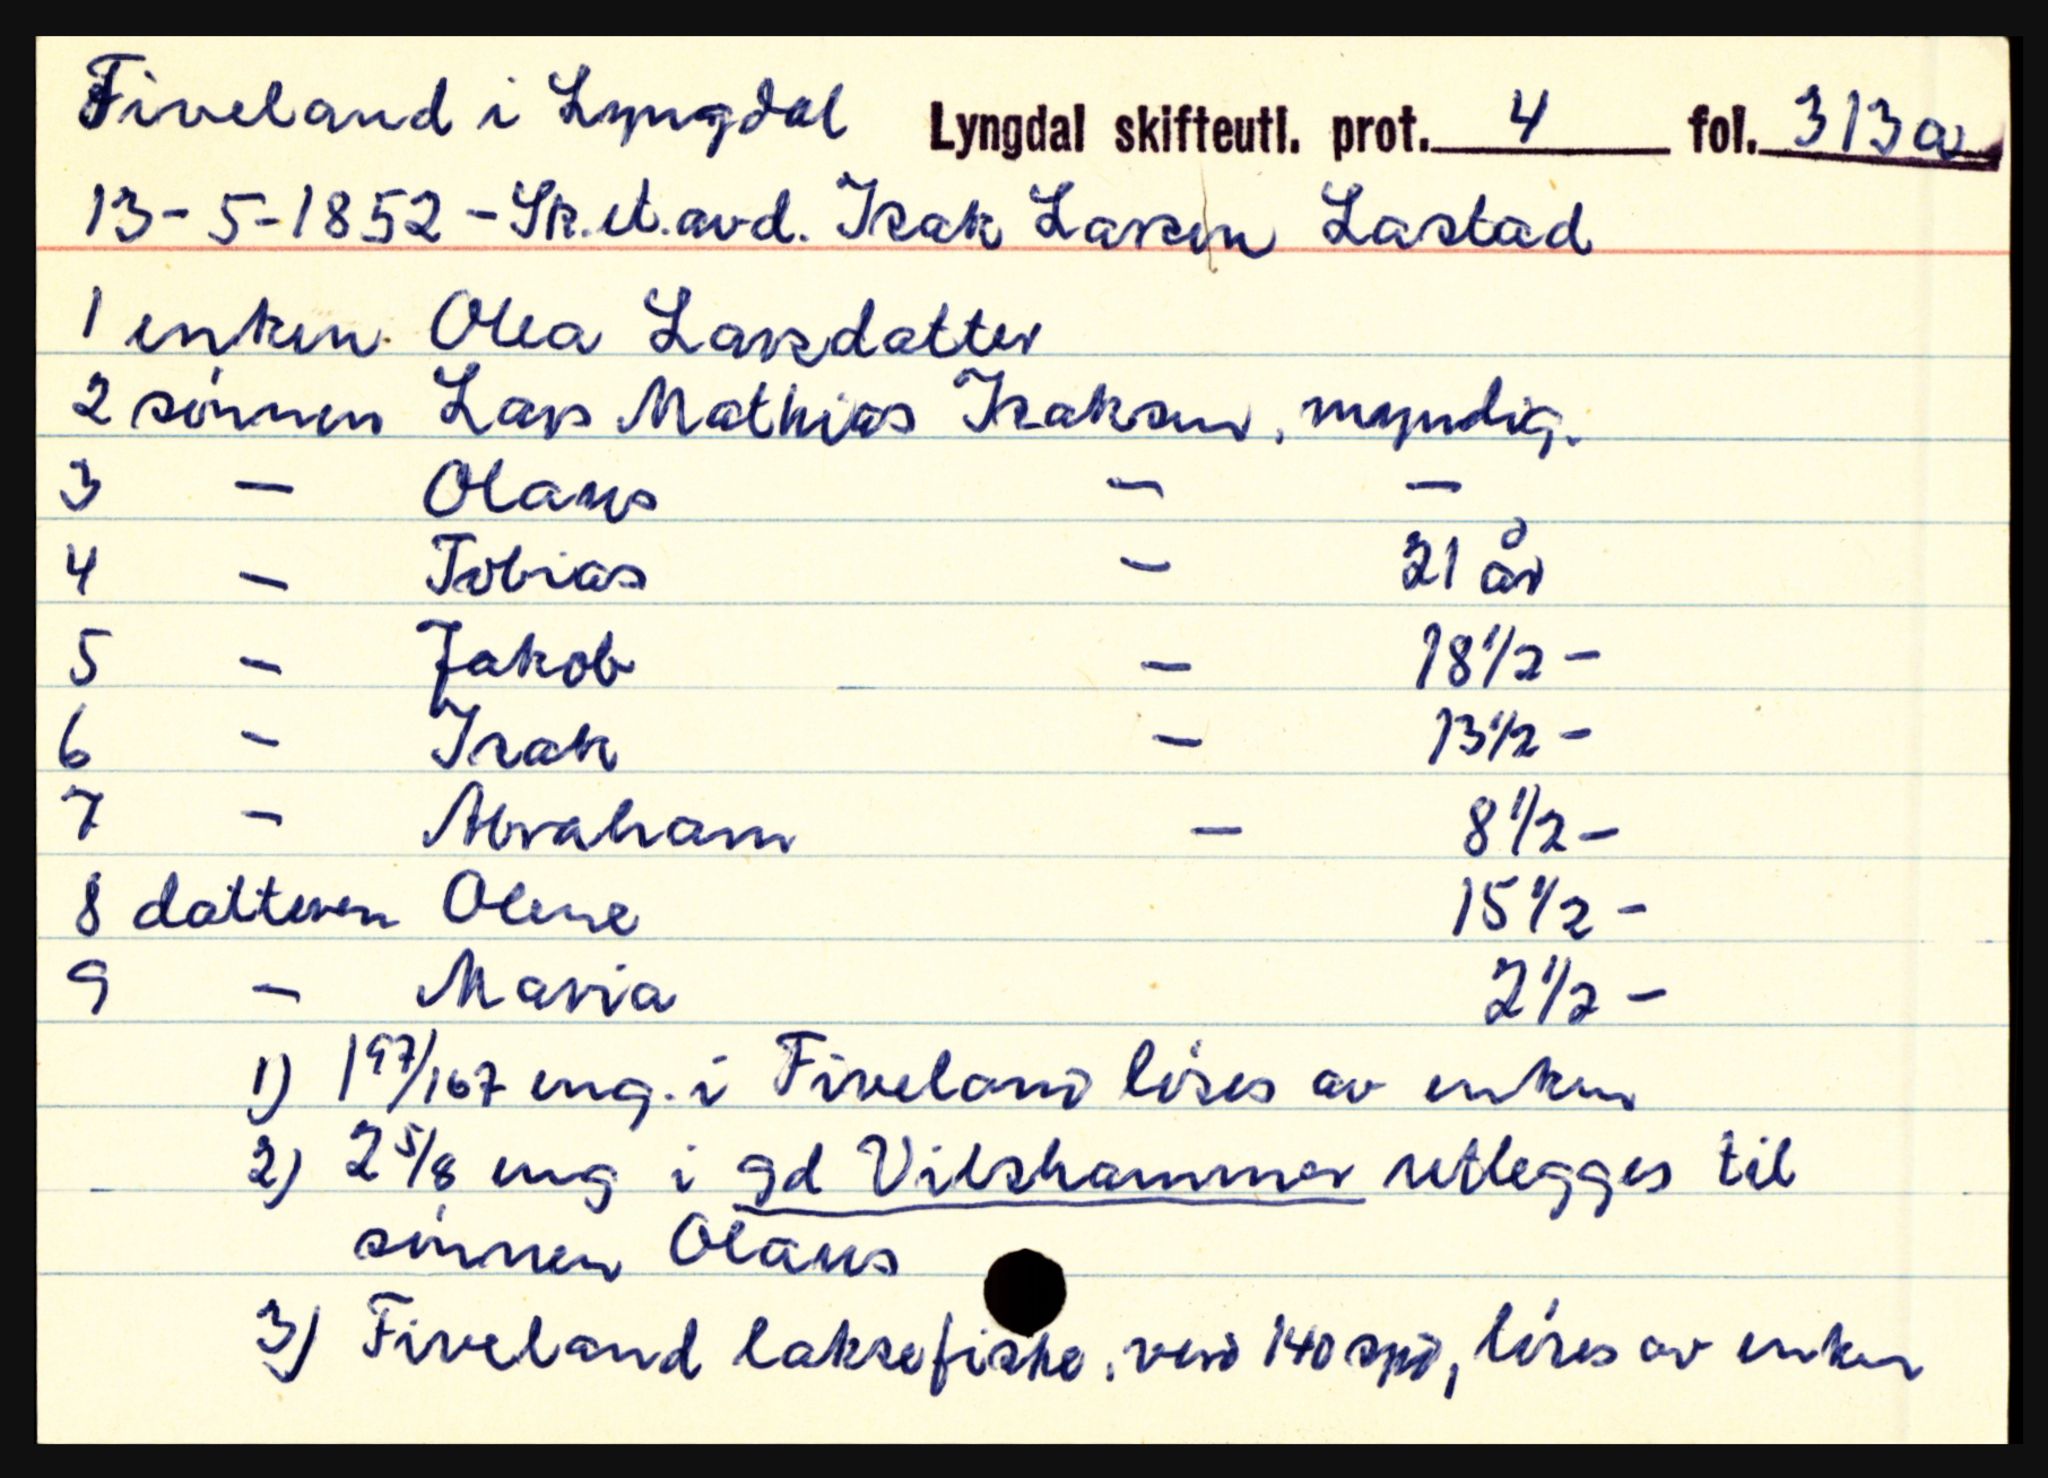 Fiveland i Lyngdal Lyngdal skifteutl. prot. 4 fol. 313a
13-5-1852 - Sk.et.avd. Isak Larsen Lastad
1 enken Olea Larsdatter
2 sönnen Lars Mathias Isaksen, myndig.
3 - Olaus - -
4 - Tobias - 21 år
5 - Jakob - 18 1/2 -
6 - Isak - 13 1/2 -
7 - Abraham - 8 1/2 -
8 datteren Olene 15 1/2 -
9 - Maria 2 1/2 -
1) 1 97/167 eng. i Fiveland löses av enken
2) 2 5/8 eng i gd Vilshammer utlegges til
sönnen Olaus
3) Fiveland laksefiske, verd 140 spd, löses av enken